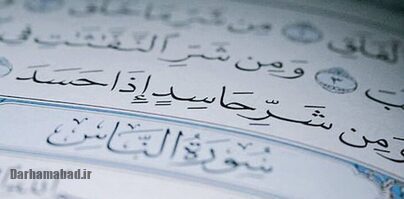 ٱلْفَلَقِ ۝١ مِن شَرِّ مَا خَلَقَ
۝٣ وَمِن شَرِّ ٱلنَّفَّٰثَٰتِ فِى
وَمِن شَرِّ حَاسِدٍ إِذَا حَسَدَ
سُورَةُ ٱلنَّاسِ
Darhamabad.ir